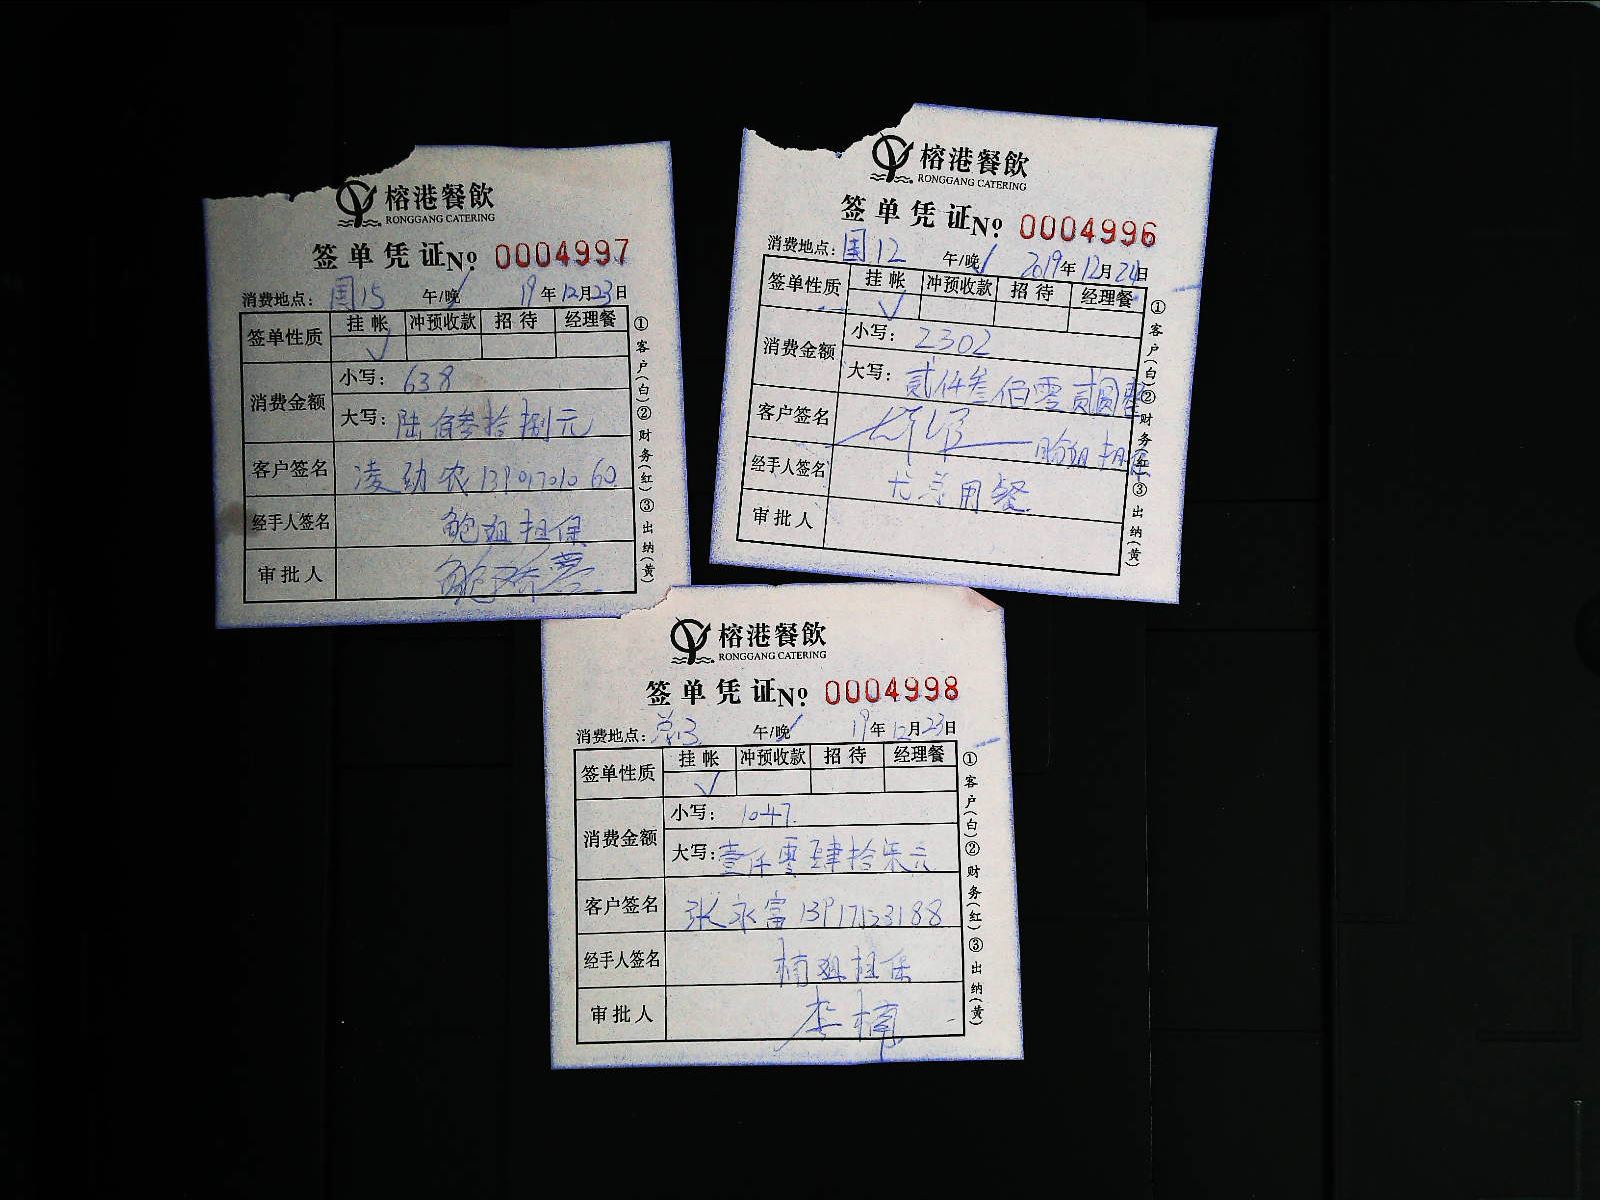 榕港餐飲
RONGGANG CATERING
签单凭证 No 0004997
消费地点: 国15 午/晚 19年12月23日
签单性质 挂帐 冲预收款 招待 经理餐
√
消费金额 小写: 638
大写: 陆佰叁拾捌元
客户签名 凌劲农
经手人签名 鲍姐担保
审批人
①客户(白)②财务(红)③出纳(黄)
榕港餐飲
RONGGANG CATERING
签单凭证 No 0004996
消费地点: 国12 午/晚 2019年12月24日
签单性质 挂帐 冲预收款 招待 经理餐
√
消费金额 小写: 2302
大写: 贰仟叁佰零贰圆整
客户签名
经手人签名 用餐
审批人
①客户(白)②财务(红)③出纳(黄)
榕港餐飲
RONGGANG CATERING
签单凭证 No 0004998
消费地点: 午/晚 19年12月23日
签单性质 挂帐 冲预收款 招待 经理餐
√
消费金额 小写: 1047.
大写: 壹仟零肆拾柒元
客户签名 张永富 13917123188
经手人签名 楠姐担保
审批人 李楠
①客户(白)②财务(红)③出纳(黄)